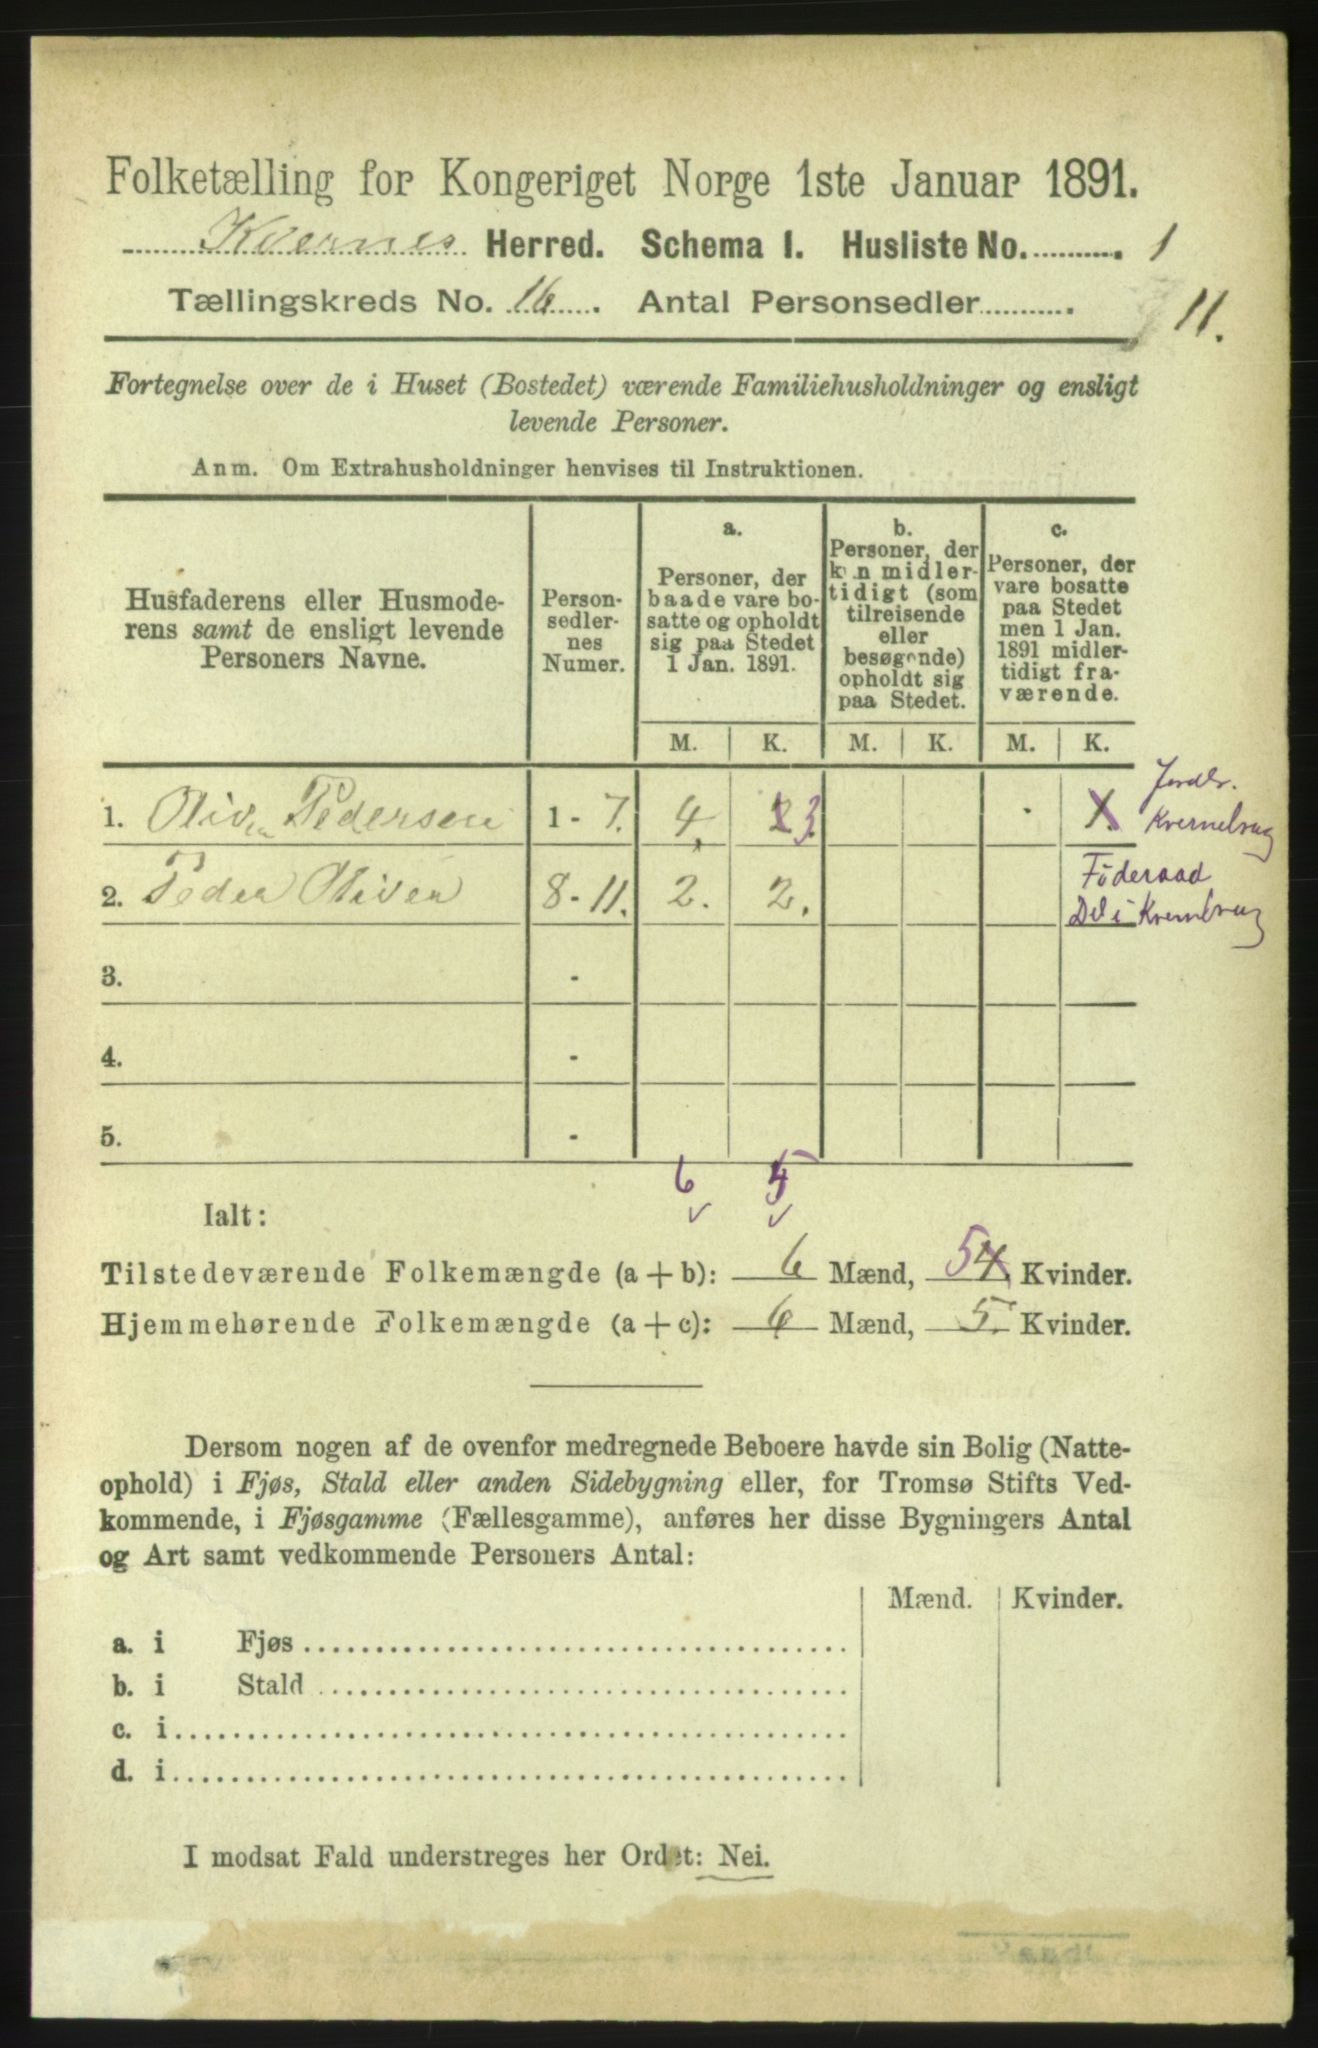 Folketælling for Kongeriget Norge 1ste Januar 1891.
Kvernes Herred. Schema I. Husliste No. 1
Tællingskreds No. 16. Antal Personsedler 11.
Fortegnelse over de i Huset (Bostedet) værende Familiehusholdninger og ensligt
levende Personer.
Anm. Om Extrahusholdninger henvises til Instruktionen.
Husfaderens eller Husmode-
rens samt de ensligt levende
Personers Navne.
Person-
sedler-
nes
Numer.
a.
Personer, der
baade vare bo-
satte og opholdt
sig paa Stedet
1 Jan. 1891.
b.
Personer, der
kun midler-
tidigt (som
tilreisende
eller
besøgende)
opholdt sig
paa Stedet.
c.
Personer, der
vare bosatte
paa Stedet
men 1 Jan.
1891 midler-
tidigt fra-
værende.
M. K. M. K. M. K.
1. Oliver Pedersen 1 - 7. 4. 2 3. 1.
Jordbr.
Kvernebrug
2. Peder Oliver 8 - 11. 2. 2.
Föderaad
Del i Kvernbrug
3. -
4. -
5. -
6 5
Ialt:
Tilstedeværende Folkemængde (a + b): 6 Mænd, 5 4. Kvinder.
Hjemmehørende Folkemængde (a + c): 6 Mænd, 5. Kvinder.
Dersom nogen af de ovenfor medregnede Beboere havde sin Bolig (Natte-
ophold) i Fjøs, Stald eller anden Sidebygning eller, for Tromsø Stifts Ved-
kommende, i Fjøsgamme (Fællesgamme), anføres her disse Bygningers Antal
og Art samt vedkommende Personers Antal:
Mænd. Kvinder.
a. i Fjøs
b. i Stald
c. i
d. i
I modsat Fald understreges her Ordet: Nei.